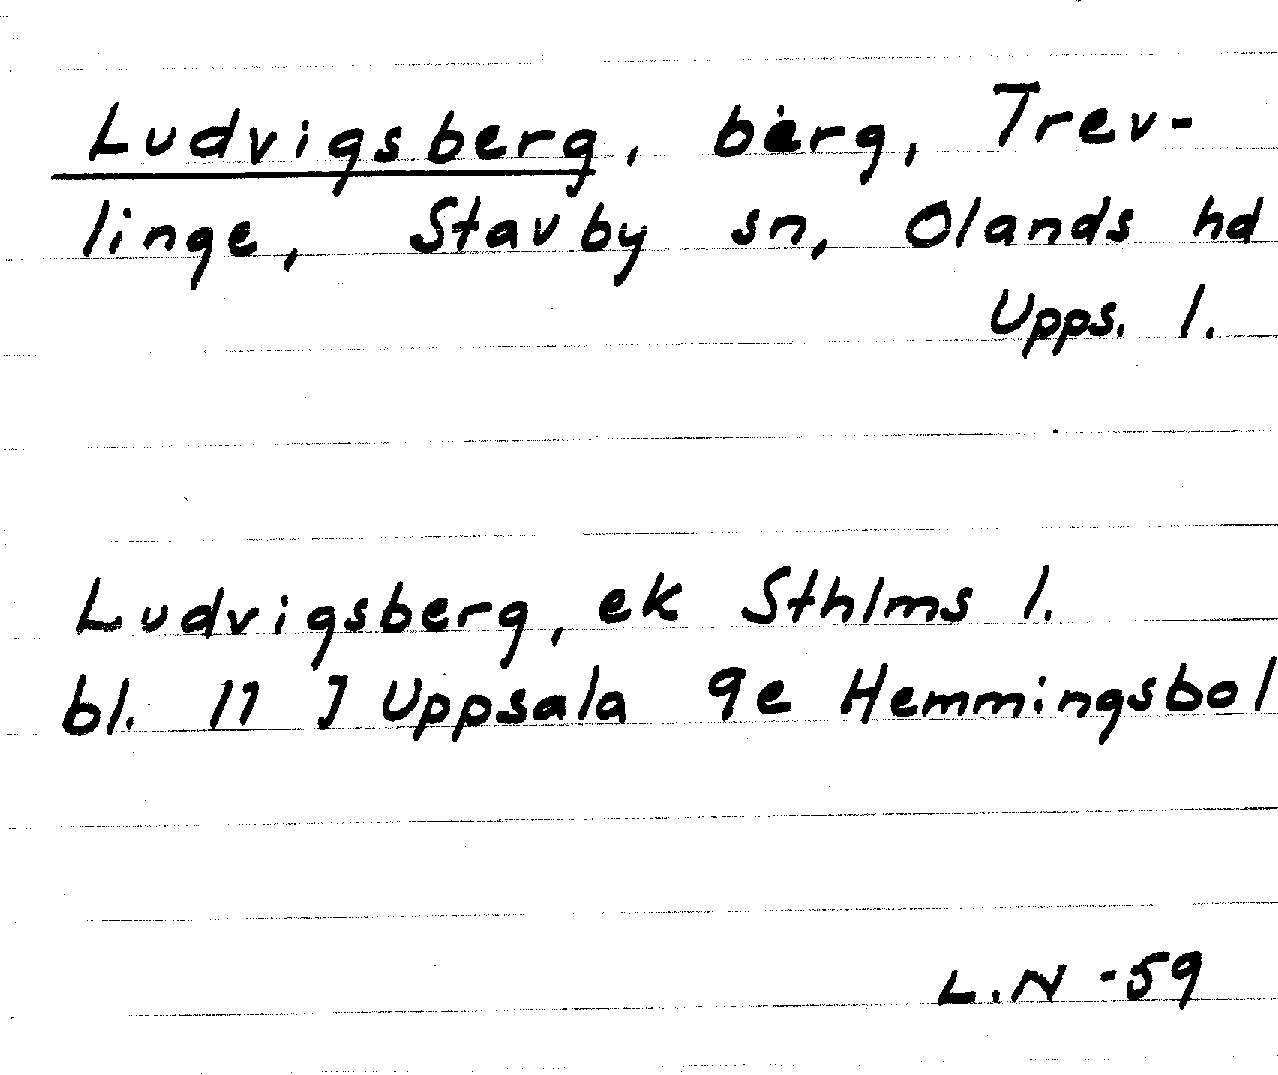 Ludvigsberg, berg, Trev-
linge, Stavby sn, Olands hd
Upps. l.
Ludvigsberg, ek Sthlms l.
bl. 11 J Uppsala 9e Hemmingsbol
L.N -59